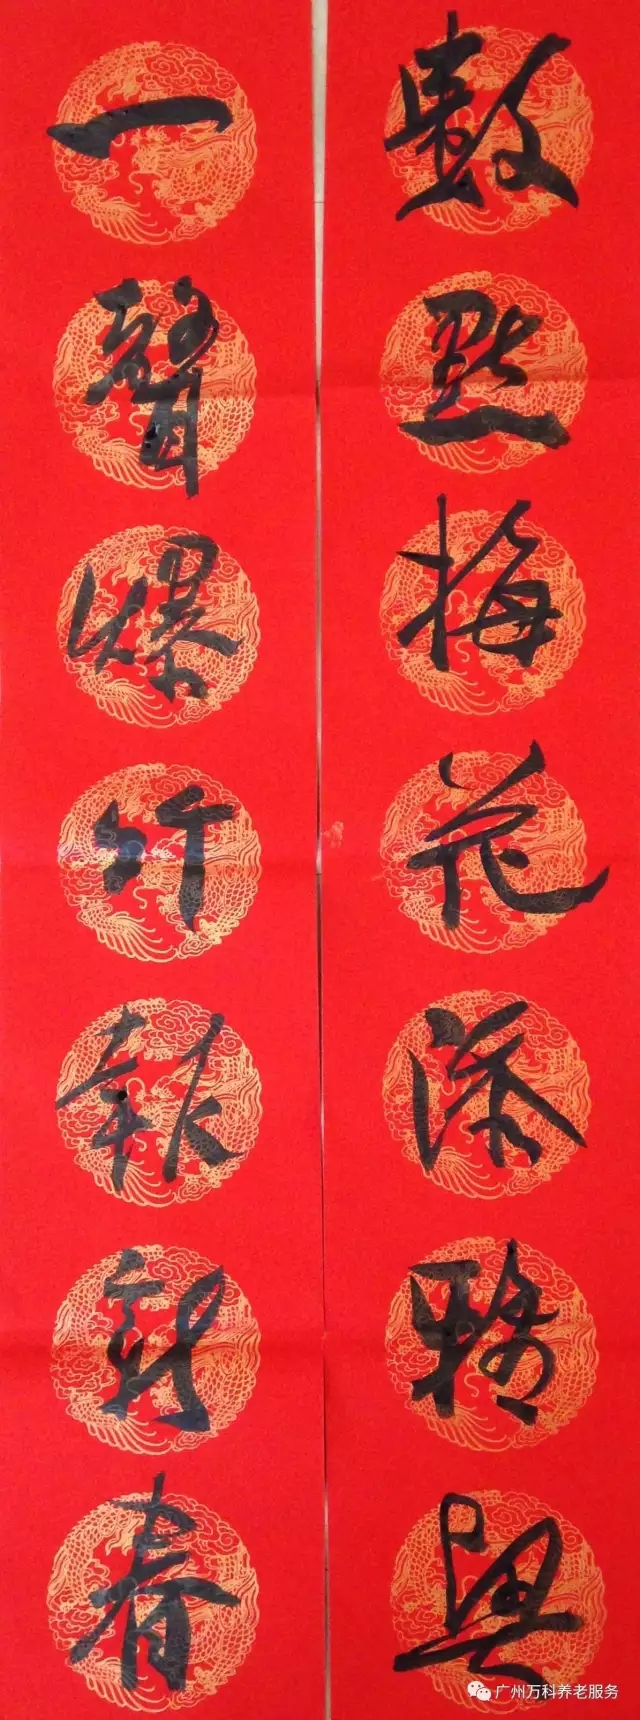 數點梅花添雅興
一聲爆竹報新春
广州万科养老服务